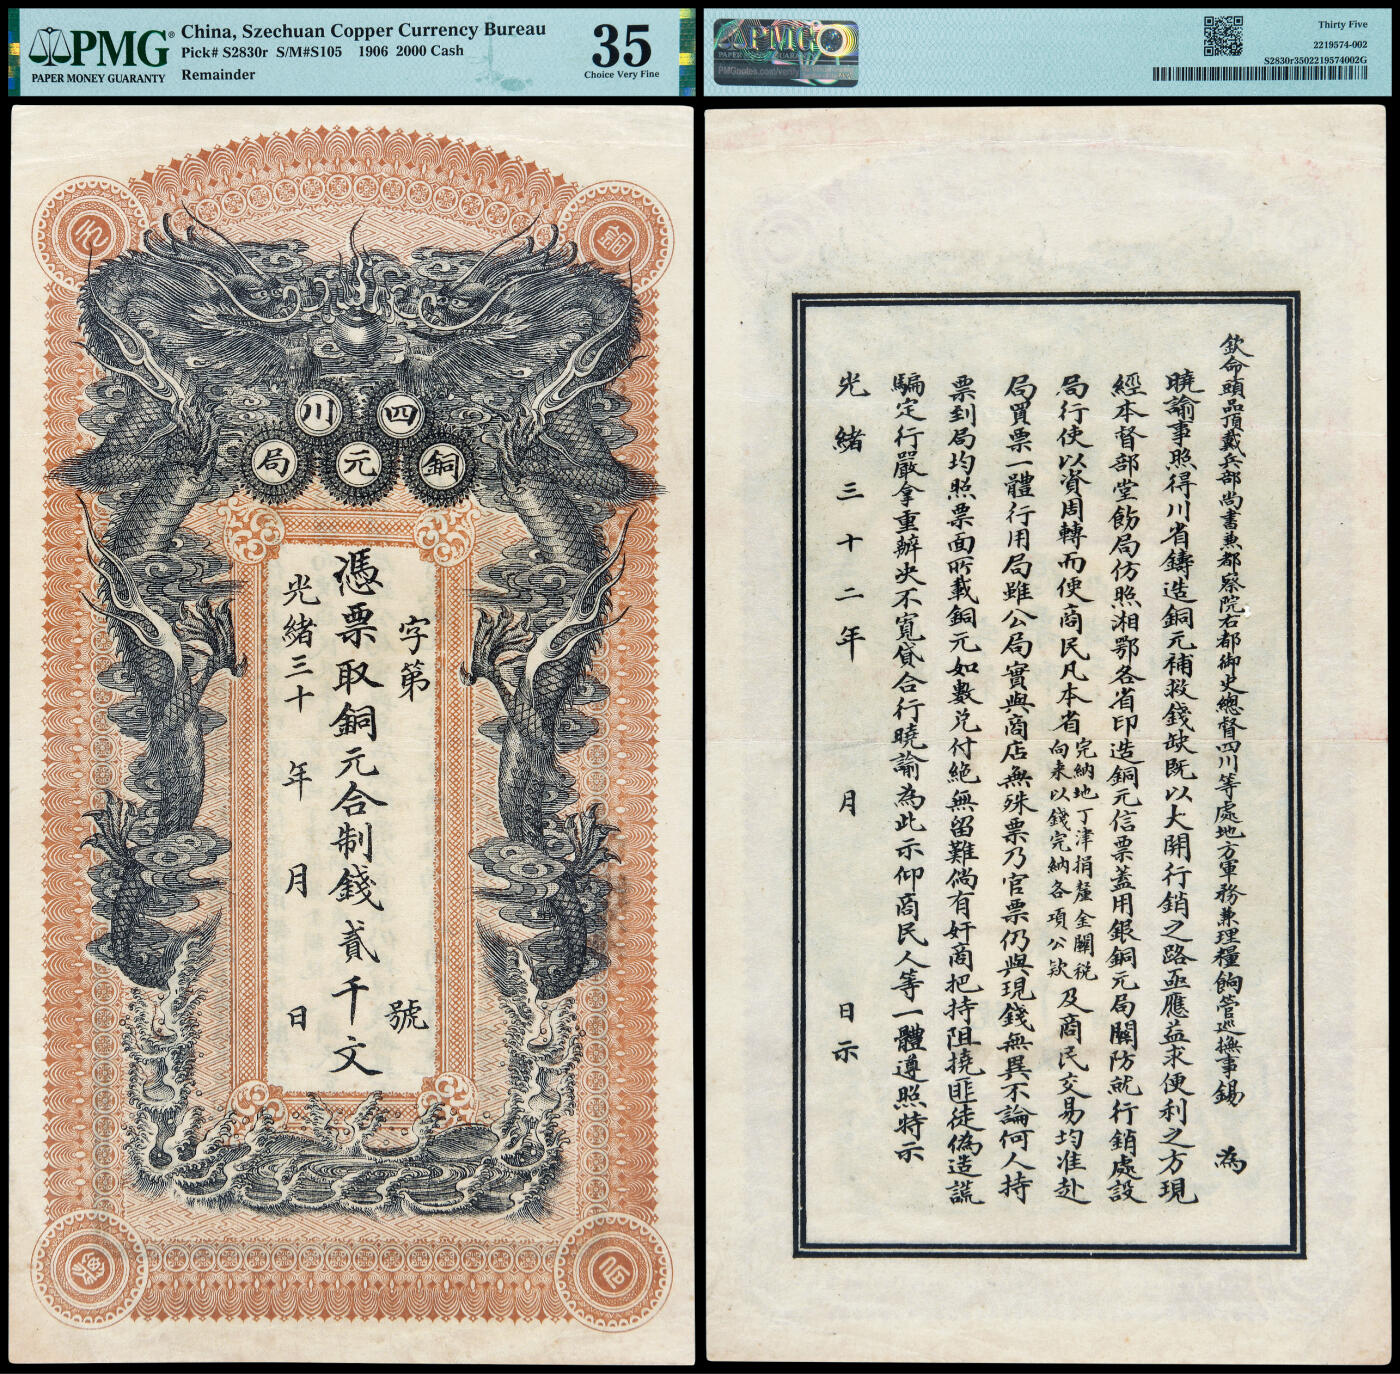 PMG
PAPER MONEY GUARANTY
China, Szechuan Copper Currency Bureau
Pick# S2830r S/M#S105 1906 2000 Cash
Remainder
35
Choice Very Fine
四川
銅元局
字第 號
憑票取銅元合制錢貳千文
光緒三十 年 月 日
PMG
Thirty Five
2219574-002
S2830r3502219574002G
欽命頭品頂戴兵部尚書兼都察院右都御史總督四川等處地方軍務兼理糧餉管巡撫事錫 為
曉諭事照得川省鑄造銅元補救錢缺既以大開行銷之路亟應益求便利之方現
經本督部堂飭局仿照湘鄂各省印造銅元信票蓋用銀銅元局關防就行銷處設
局行使以資周轉而便商民凡本省完納地丁津捐釐金關稅向來以錢完納各項公欵及商民交易均准赴
局買票一體行用局雖公局實與商店無殊票乃官票仍與現錢無異不論何人持
票到局均照票面所載銅元如數兑付絶無留難倘有奸商把持阻撓匪徒偽造謊
騙定行嚴拿重辦决不寬貸合行曉諭為此示仰商民人等一體遵照特示
光緒三十二年 月 日示